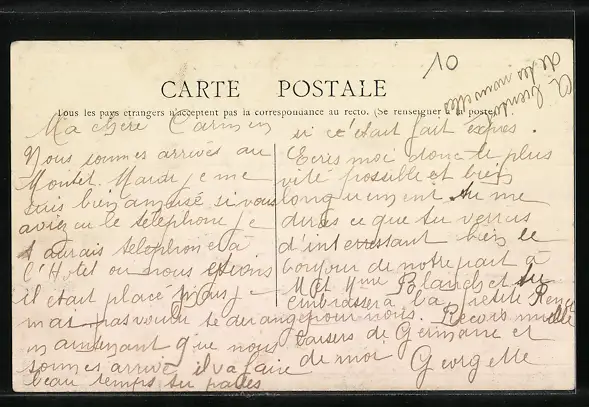 10
de tes nouvelles
CARTE POSTALE
Tous les pays etrangers n'acceptent pas la correspondance au recto. (Se renseigner à la poste)
Ma chère Carmen
Nous sommes arrivés au
Montet. Mardi je me
suis bien amusé si vous
aviez eu le telephone je
t aurais telephoné à
l'Hotel ou nous étions
il etait placé mais je
mai pas voulu te deranger
maintenant que nous
sommes arrivé il va faire
beau temps tu parles
si ce était fait exprès.
Ecris moi donc le plus
vite possible et bien
longuement tu me
diras ce que tu verras
d'interressant bien le
bonjour de notre part à
M et Mme et tu
embrassera la petite Renée
pour nous. Recois mille
baisers de Germaine et
de moi Georgette